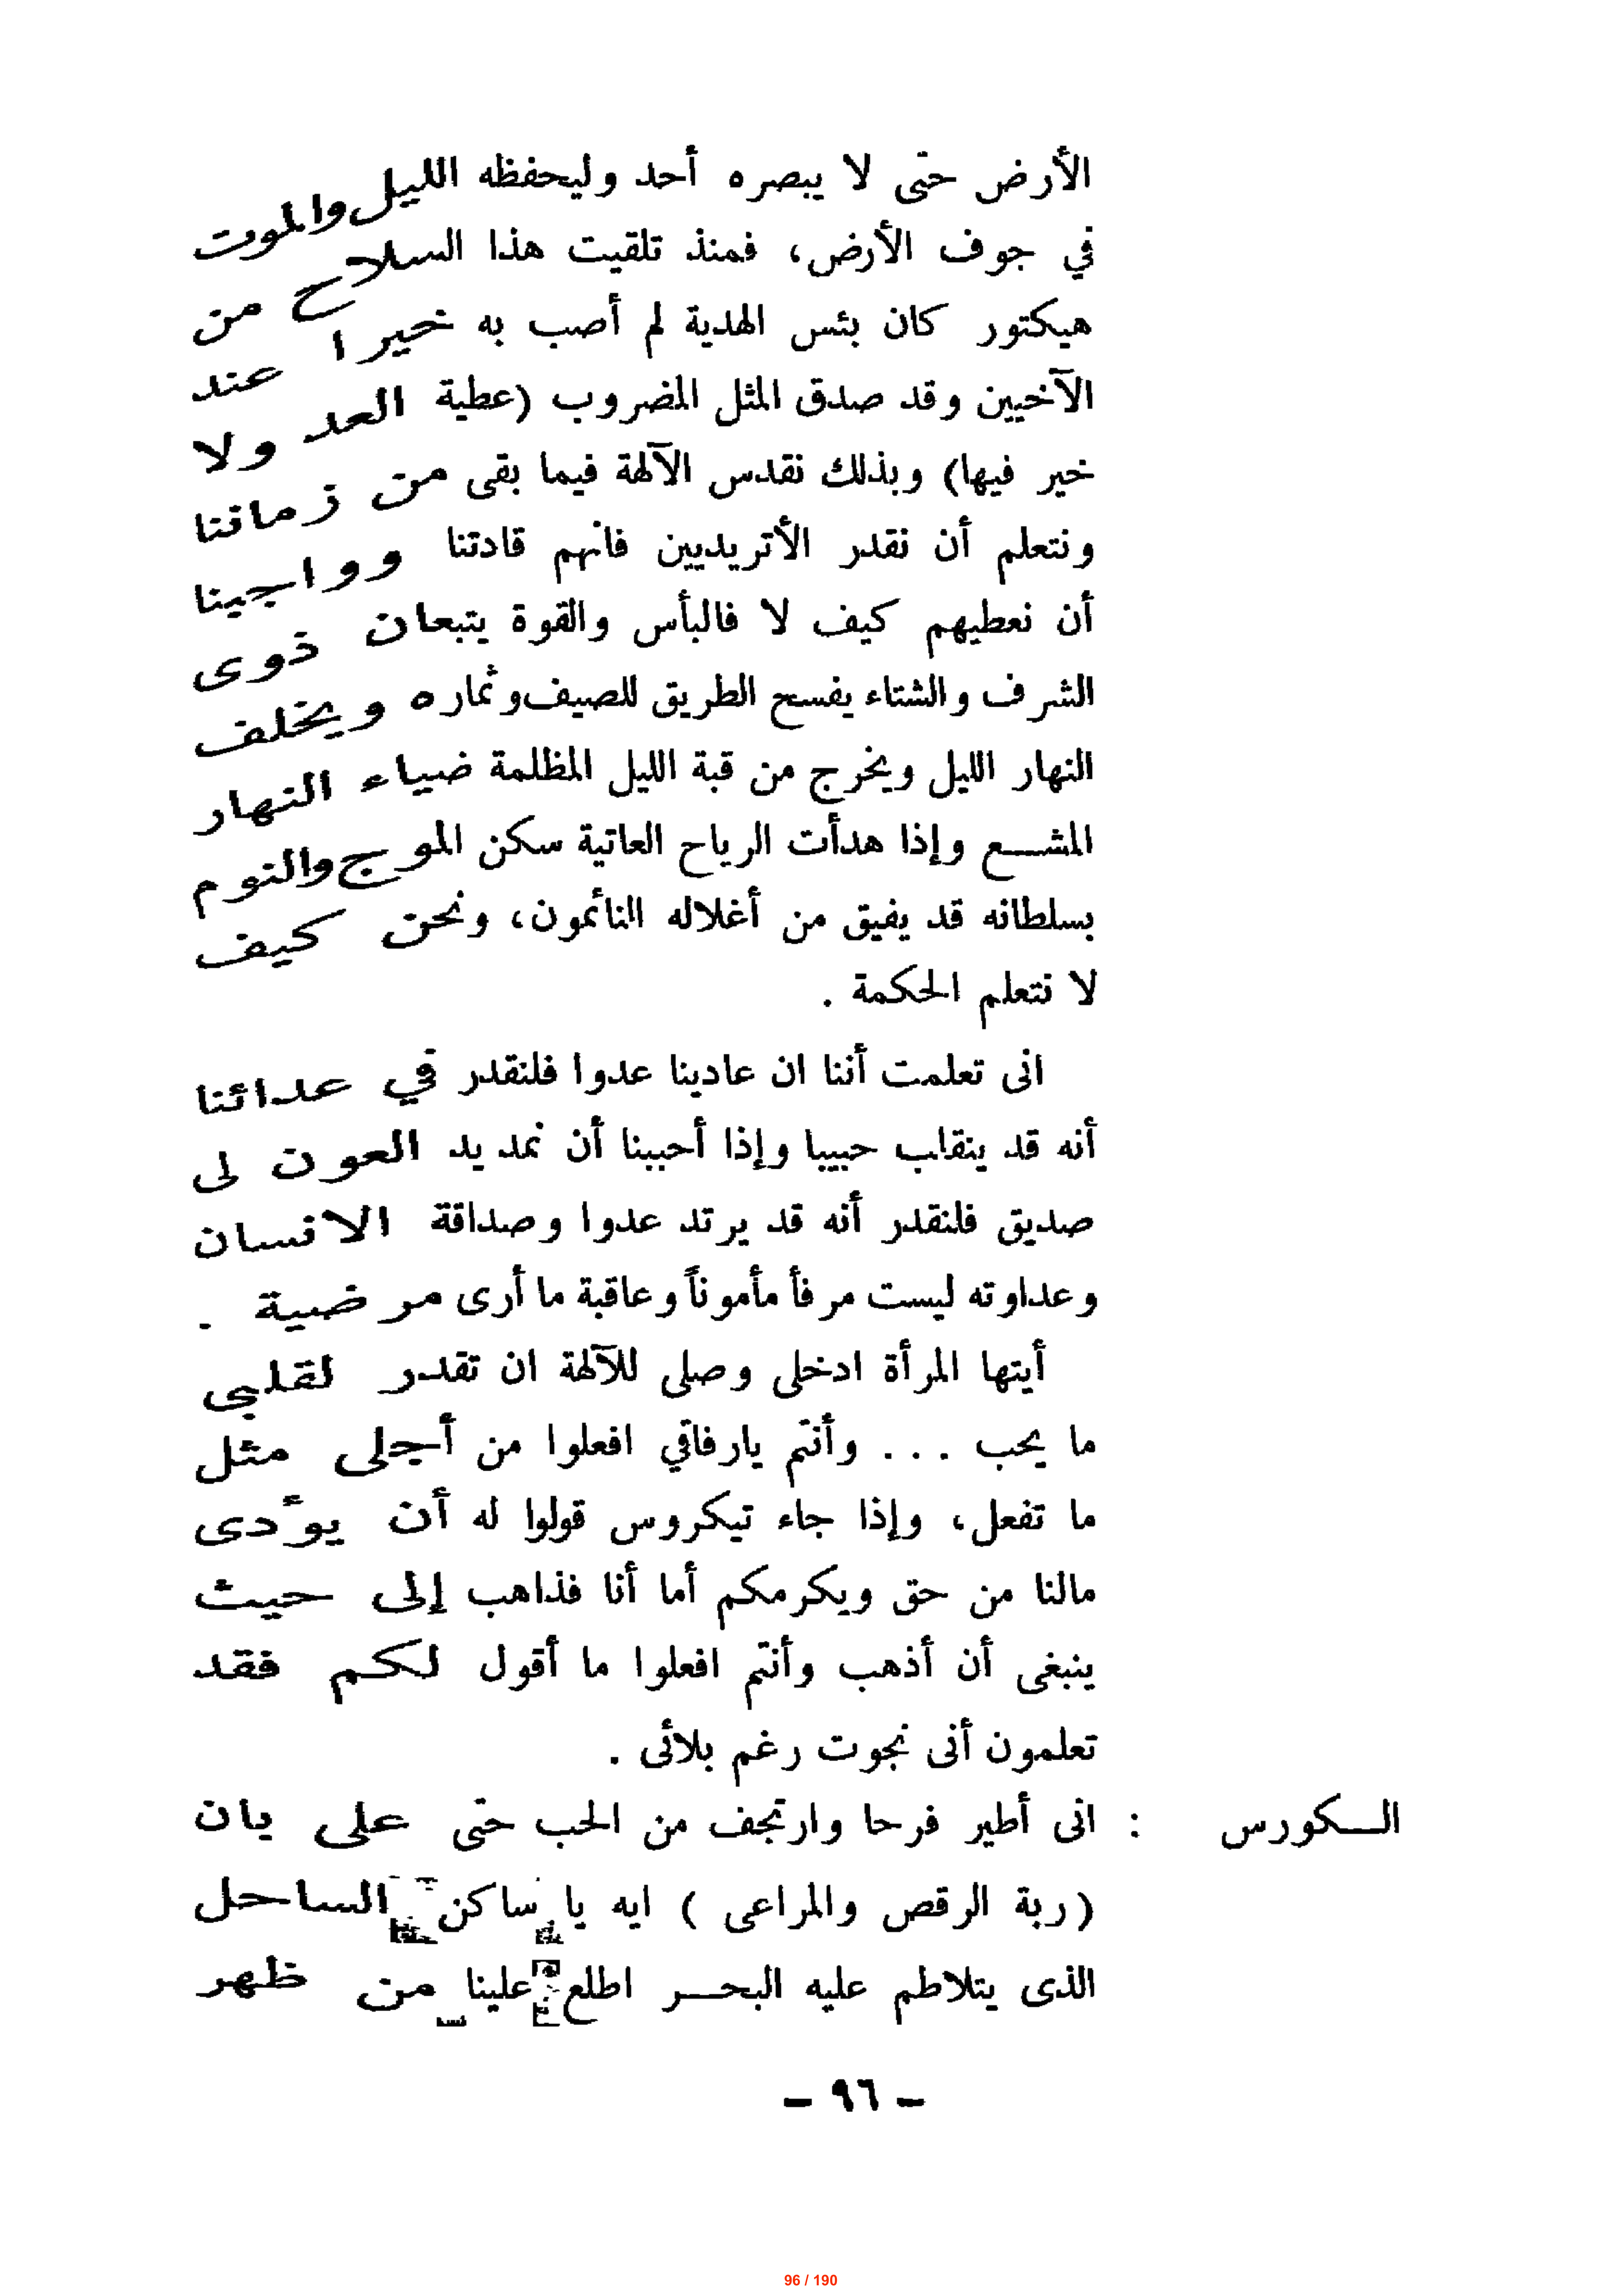 الأرض حتى لا يبصره أحد وليحفظه الليل والموت
في جوف الأرض، فمنذ تلقيت هذا السلاح من
هيكتور كان بئس الهدية لم أصب به خيرا عند
الآخيين وقد صدق المثل المضروب (عطية العد ولا
خير فيها) وبذلك نقدس الآلهة فيما بقى من زماننا
ونتعلم أن نقدر الأتريديين فانهم قادتنا وواجبنا
أن نعطيهم كيف لا فالبأس والقوة يتبعان ذوى
الشرف والشتاء يفسح الطريق للصيف وثماره ويخلف
النهار الليل ويخرج من قبة الليل المظلمة ضياء النهار
المشـع وإذا هدأت الرياح العاتية سكن الموج والنوم
بسلطانه قد يفيق من أغلاله النائمون، ونحن كيف
لا نتعلم الحكمة .
انى تعلمت أننا ان عادينا عدوا فلنقدر في عدائنا
أنه قد ينقلب حبيبا وإذا أحببنا أن نمد يد العون لى
صديق فلنقدر أنه قد يرتد عدوا وصداقة الانسان
وعداوته ليست مرفأ مأموناً وعاقبة ما أرى مرضية .
أيتها المرأة ادخلى وصلى للآلهة ان تقدر لقلبى
ما يحب . . . وأنتم يارفاقي افعلوا من أجلى مثل
ما تفعل، وإذا جاء تيكروس قولوا له أن يؤدى
مالنا من حق ويكرمكم أما أنا فذاهب إلى حيث
ينبغى أن أذهب وأنتم افعلوا ما أقول لكم فقد
تعلمون أنى نجوت رغم بلائى .
الـكورس : انى أطير فرحا وارتجف من الحب حتى على يان
(ربة الرقص والمراعى ) ايه يا ساكن الساحل
الذى يتلاطم عليه البحـر اطلع علينا من ظهر
– ٩٦ –
96 / 190